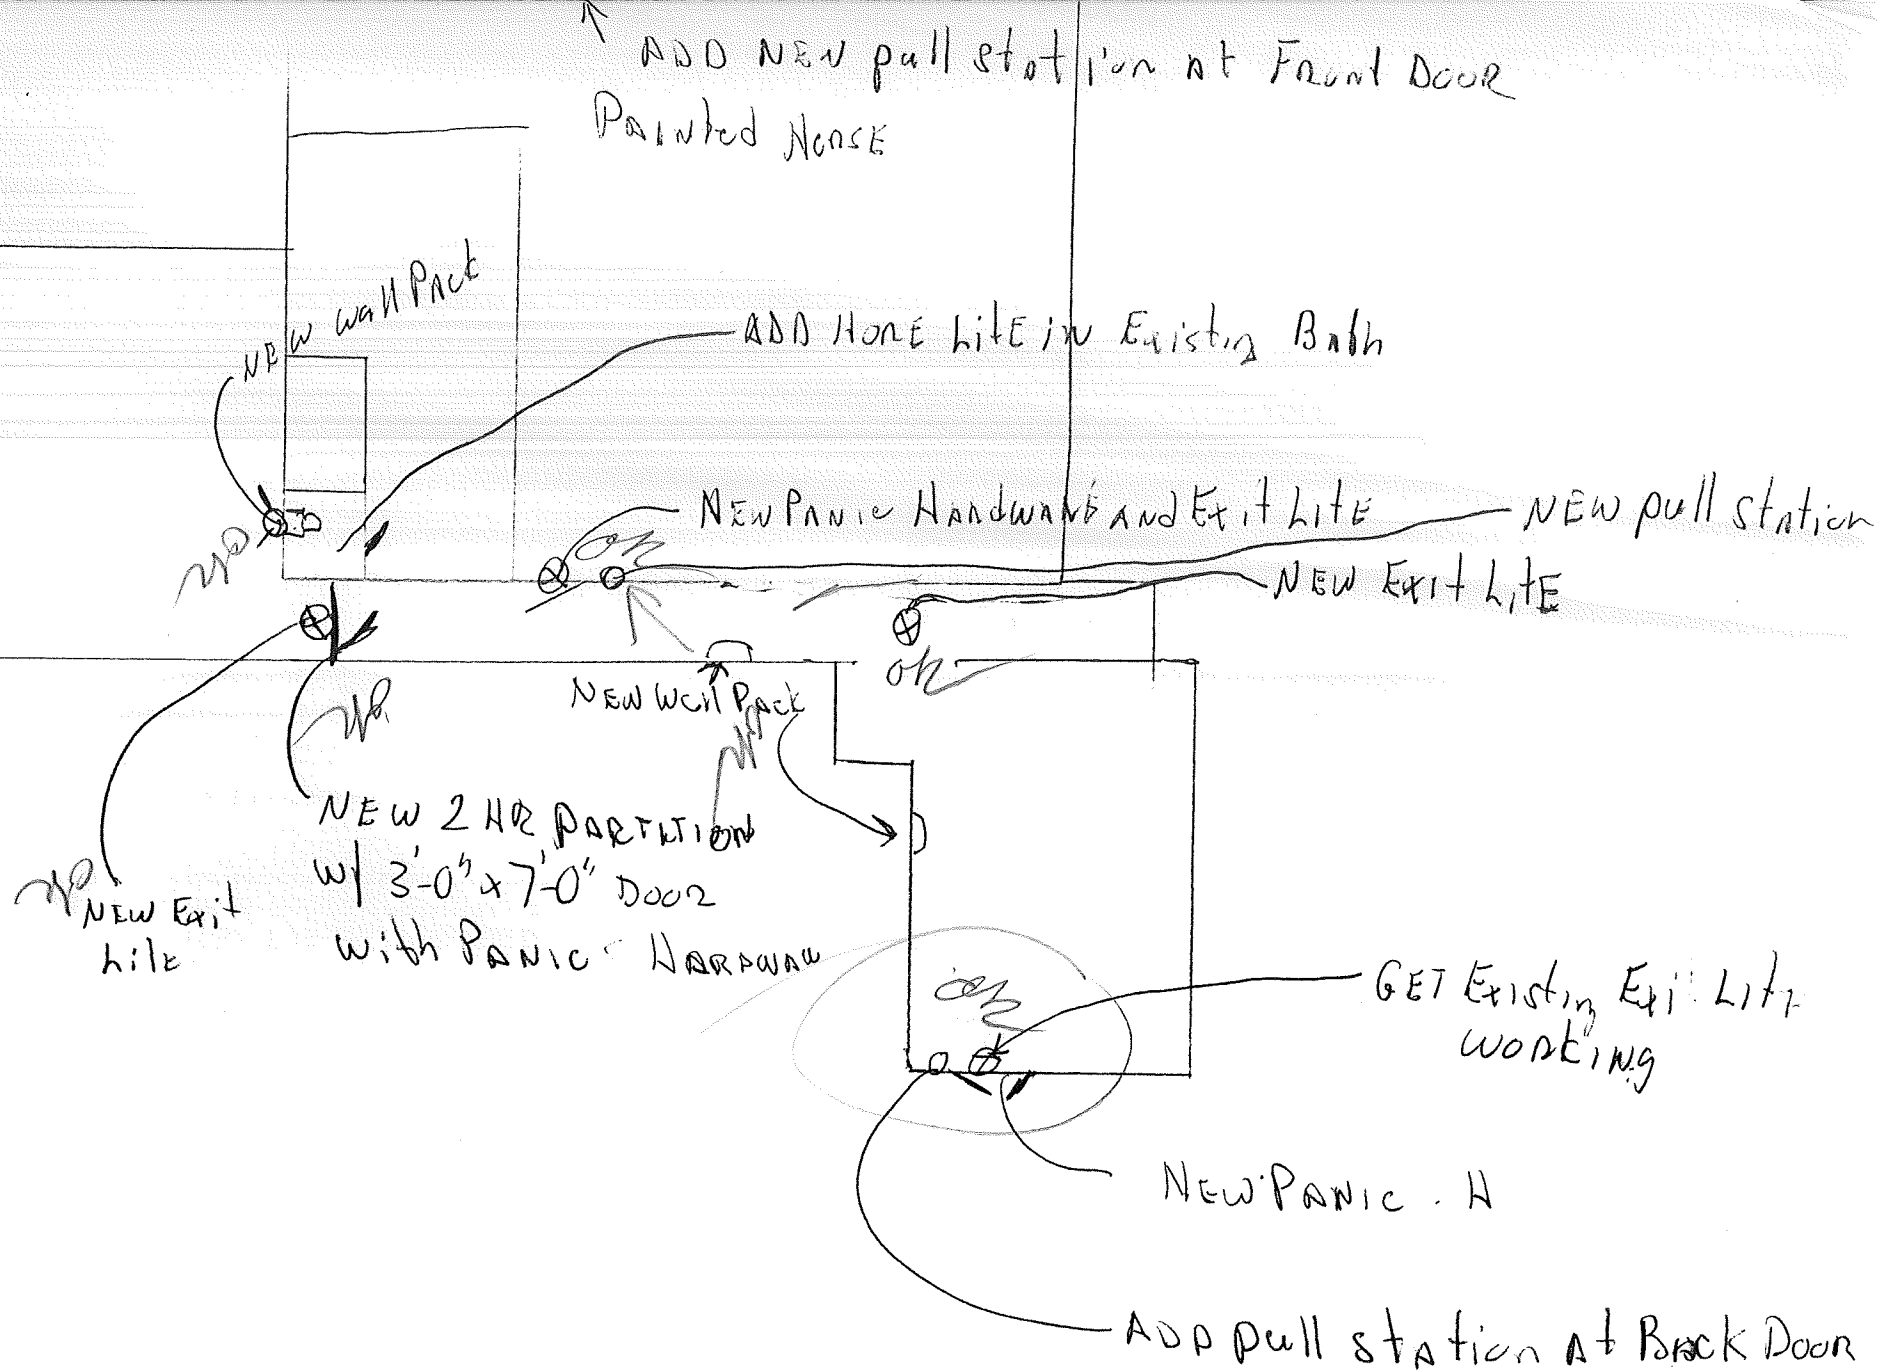 ADD NEW pull station At Front Door
Painted Horse
NEW Wall Pack
ADD HORE LitE in Existing Bath
New Panic Hardware and Exit LitE
NEW pull station
ok
NEW Exit LitE
ok
New Wall Pack
NEW 2 HR PARTITION
w/ 3'-0" x 7'-0" Door
with PANIC Hardwaw
NEW Exit
Lite
ok
GET Existing Exi Lite
working
NEW PANIC . H
ADD pull station At Back Door